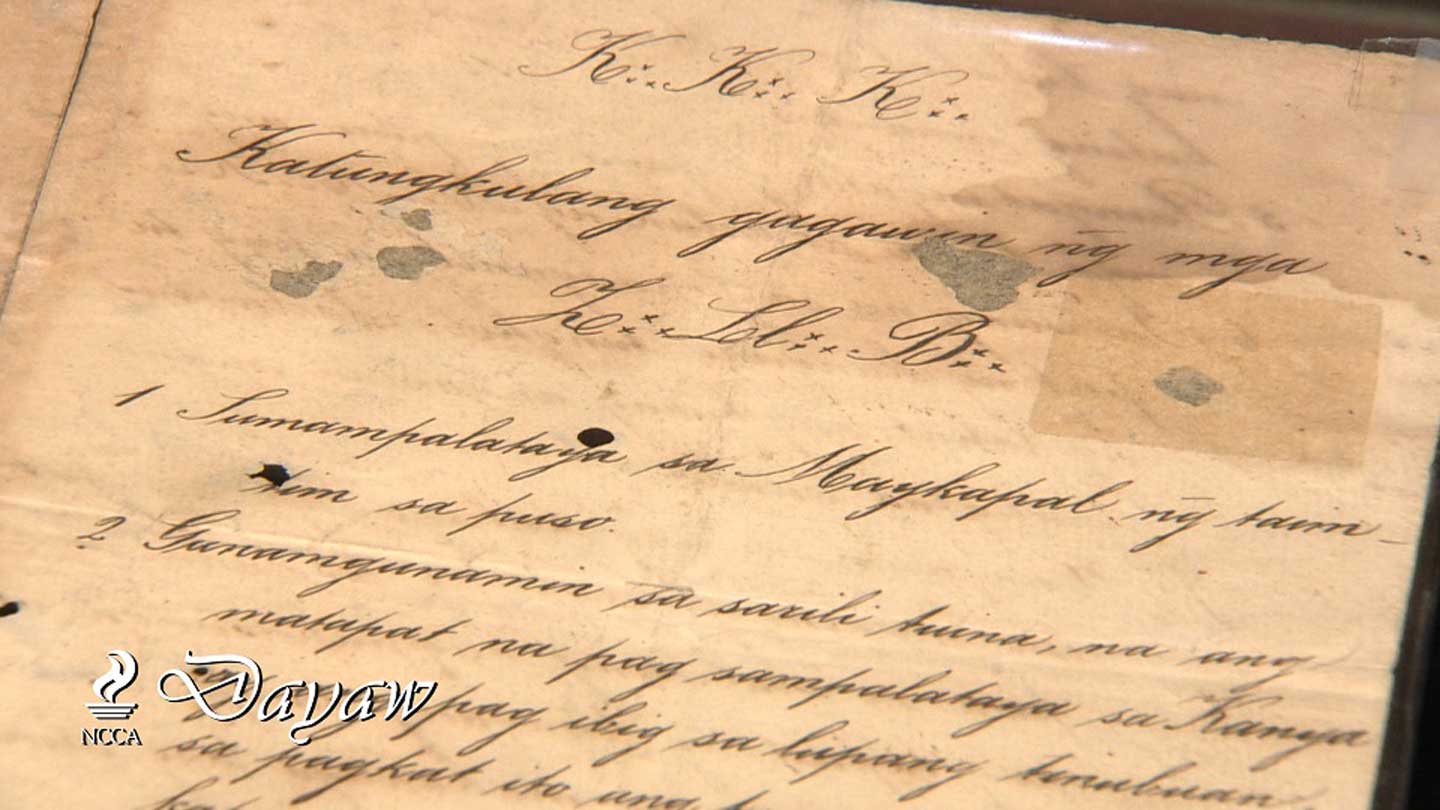 K∴ K∴ K∴
Katungkulang gagawin ñg mga
Z∴ Ll∴ B∴
1 Sumampalataya sa Maykapal ñg taim-
tim sa puso.
2 Gunamgunamin sa sarili tuina, na ang
matapat na pag sampalataya sa Kanya
pag ibig sa lupang tinubuan
sa pagkat ito ang
NCCA
Dayaw